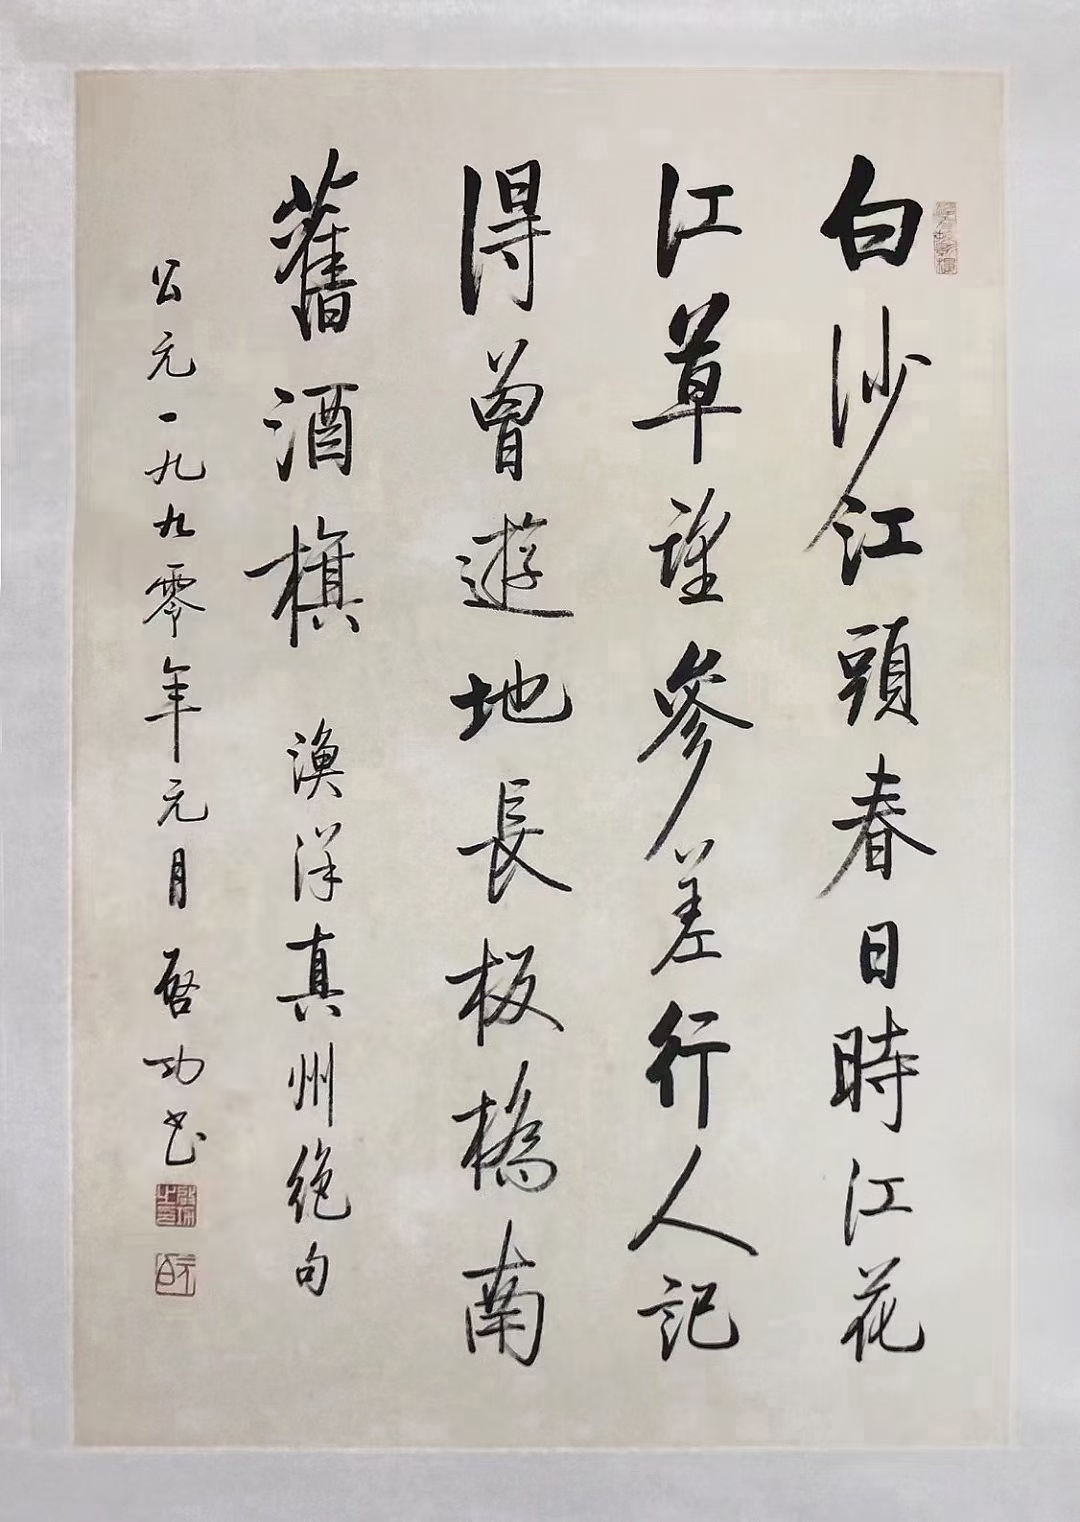 白沙江頭春日時江花
江草望參差行人記
得曾遊地長板橋南
舊酒旗 漁洋真州絕句
公元一九九零年元月 啓功書
啓功之印
元白